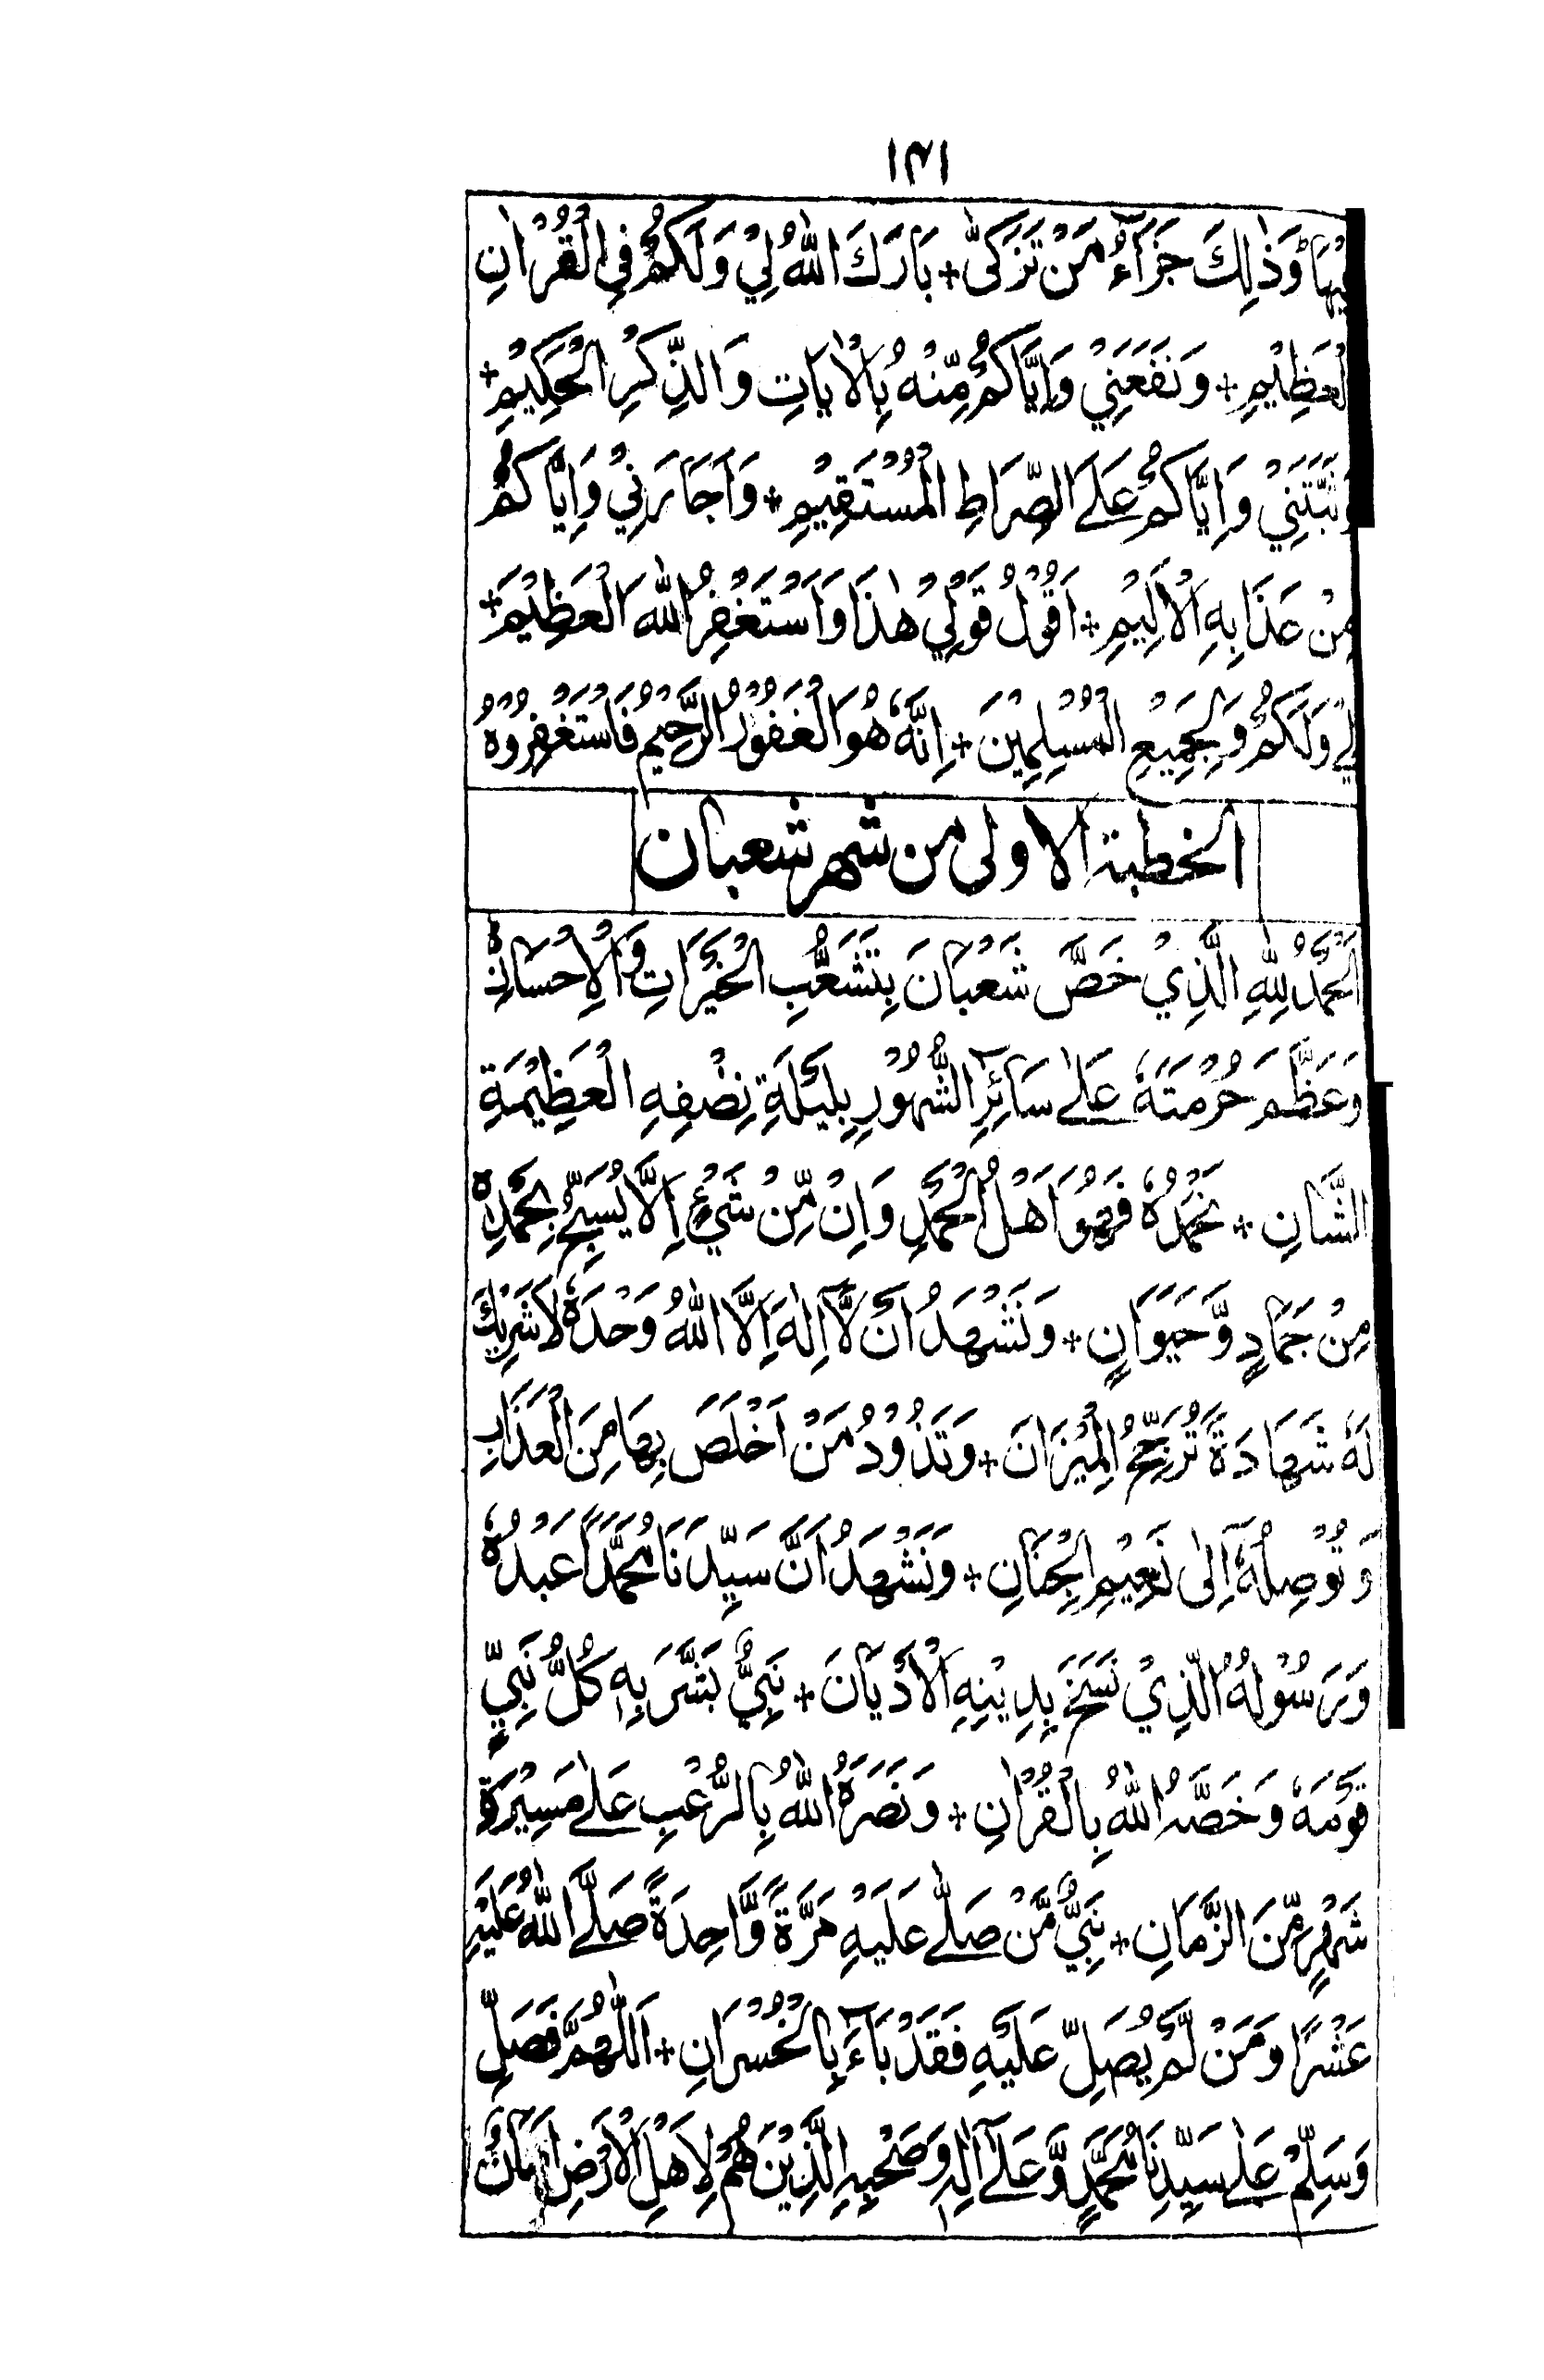 ۱۴۱
فِيْهَا وَذٰلِكَ جَزَآءُ مَنْ تَزَكّٰى + بَارَكَ اللّٰهُ لِيْ وَلَكُمْ فِي الْقُرْاٰنِ
الْعَظِيْمِ + وَنَفَعَنِيْ وَاِيَّاكُمْ مِّنْهُ بِالْاٰيَاتِ وَالذِّكْرِ الْحَكِيْمِ +
وَثَبَّتَنِيْ وَاِيَّاكُمْ عَلَى الصِّرَاطِ الْمُسْتَقِيْمِ + وَاَجَارَنِيْ وَاِيَّاكُمْ
مِنْ عَذَابِهِ الْاَلِيْمِ + اَقُوْلُ قَوْلِيْ هٰذَا وَاَسْتَغْفِرُ اللّٰهَ الْعَظِيْمَ +
لِيْ وَلَكُمْ وَلِجَمِيْعِ الْمُسْلِمِيْنَ + اِنَّهٗ هُوَ الْغَفُوْرُ الرَّحِيْمُ فَاسْتَغْفِرُوْهُ
الخطبة الاولى من شهر شعبان
اَلْحَمْدُ لِلّٰهِ الَّذِيْ خَصَّ شَعْبَانَ بِتَشَعُّبِ الْخَيْرَاتِ وَالْاِحْسَانِ
وَعَظَّمَ حُرْمَتَهٗ عَلٰى سَآئِرِ الشُّهُوْرِ بِلَيْلَةِ نِصْفِهِ الْعَظِيْمَةِ
الشَّانِ + نَحْمَدُهٗ فَهُوَ اَهْلُ الْحَمْدِ وَاِنْ مِّنْ شَيْءٍ اِلَّا يُسَبِّحُ بِحَمْدِهٖ
مِنْ جَمَادٍ وَّحَيَوَانٍ + وَنَشْهَدُ اَنْ لَّآ اِلٰهَ اِلَّا اللّٰهُ وَحْدَهٗ لَا شَرِيْكَ
لَهٗ شَهَادَةً تُرَجِّحُ الْمِيْزَانَ + وَتَذُوْدُ مَنْ اَخْلَصَ بِهَا مِنَ الْعَذَابِ
وَتُوْصِلُهٗ اِلٰى نَعِيْمِ الْجِنَانِ + وَنَشْهَدُ اَنَّ سَيِّدَنَا مُحَمَّدًا عَبْدُهٗ
وَرَسُوْلُهُ الَّذِيْ نَسَخَ بِدِيْنِهِ الْاَدْيَانَ + نَبِيٌّ بَشَّرَ بِهٖ كُلُّ نَبِيٍّ
قَوْمَهٗ وَخَصَّهُ اللّٰهُ بِالْقُرْاٰنِ + وَنَصَرَهُ اللّٰهُ بِالرُّعْبِ عَلٰى مَسِيْرَةِ
شَهْرٍ مِّنَ الزَّمَانِ + نَبِيٌّ مَّنْ صَلّٰى عَلَيْهِ مَرَّةً وَّاحِدَةً صَلَّى اللّٰهُ عَلَيْهِ
عَشْرًا وَمَنْ لَّمْ يُصَلِّ عَلَيْهِ فَقَدْ بَآءَ بِالْخُسْرَانِ + اَللّٰهُمَّ فَصَلِّ
وَسَلِّمْ عَلٰى سَيِّدِنَا مُحَمَّدٍ وَّعَلٰٓى اٰلِهٖ وَصَحْبِهِ الَّذِيْنَ هُمْ لِاَهْلِ الْاَرْضِ اَمَانٌ